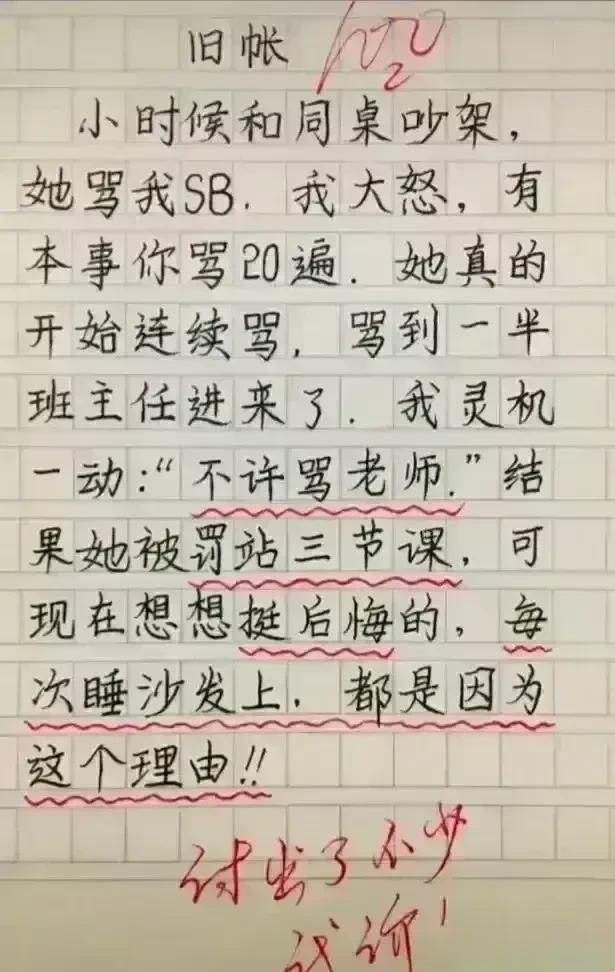 旧帐 100
小时候和同桌吵架,
她骂我SB. 我大怒, 有
本事你骂20遍. 她真的
开始连续骂, 骂到一半
班主任进来了. 我灵机
一动:“不许骂老师.”结
果她被罚站三节课, 可
现在想想挺后悔的, 每
次睡沙发上, 都是因为
这个理由!!
付出了不少
代价!